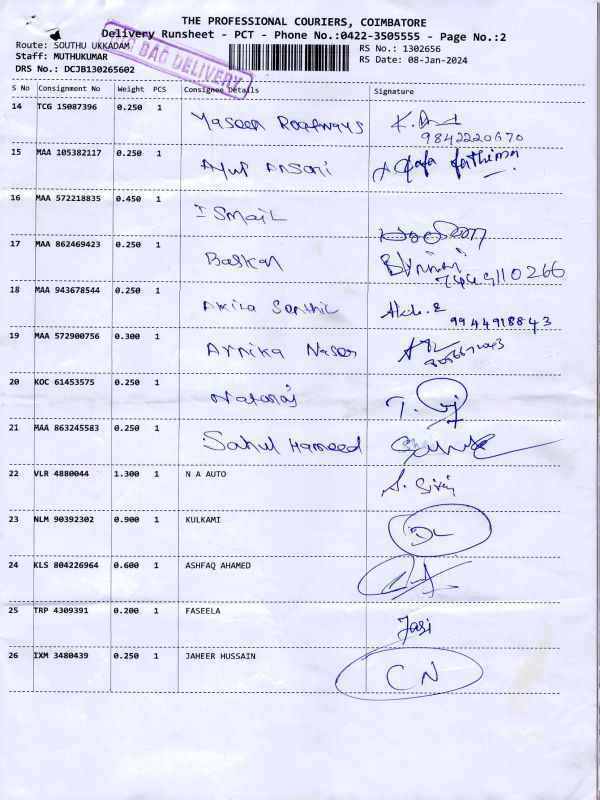 THE PROFESSIONAL COURIERS, COIMBATORE
Delivery Runsheet - PCT - Phone No.:0422-3505555 - Page No.:2
BAG DELIVERY
Route: SOUTHU UKKADAM RS No.: 1302656
Staff: MUTHUKUMAR RS Date: 08-Jan-2024
DRS No.: DCJB130265602
S No Consignment No Weight PCS Consignee Details Signature
14 TCG 15087396 0.250 1 Yaseen Roadways
9842220670
15 MAA 105382117 0.250 1 Ayup Ansari fathima
16 MAA 572218835 0.450 1 ISMAIL
17 MAA 862469423 0.250 1 Baskar
18 MAA 943678544 0.250 1 Akila Senthil
9944918843
19 MAA 572900756 0.300 1 Arnika Naser
20 KOC 61453575 0.250 1 Nataraj
21 MAA 863245583 0.250 1 Sahul Hameed
22 VLR 4880044 1.300 1 N A AUTO
23 NLM 90392302 0.900 1 KULKAMI DL
24 KLS 804226964 0.600 1 ASHFAQ AHAMED
25 TRP 4309391 0.200 1 FASEELA Jasi
26 IXM 3480439 0.250 1 JAHEER HUSSAIN CN